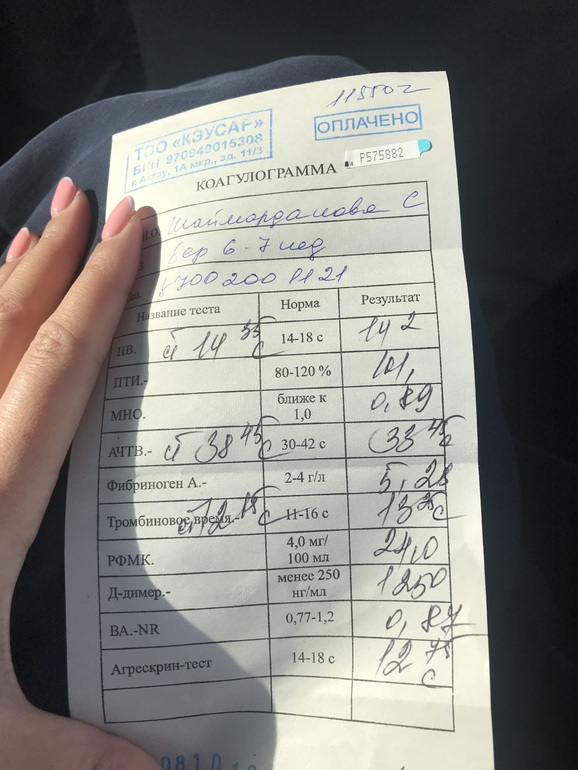 11550₸
ТОО «КЭУСАР»
БИН 970940015308
г. Актау, 1А мкр., зд. 11/3
ОПЛАЧЕНО
P575882
КОАГУЛОГРАММА
И.О. Шаймарданова С
бер 6-7 нед
8700 200 11 21
Название теста Норма Результат
ПВ. 14 55 с 14-18 с 14 2
ПТИ.- 80-120 % 101,
МНО. ближе к 1,0 0,89
АЧТВ.- 38 45 с 30-42 с 33 45 с
Фибриноген А.- 2-4 г/л 5,28
Тромбиновое время.- 12 15 с 11-16 с 13 25 с
РФМК. 4,0 мг/ 100 мл 24,0
Д-димер.- менее 250 нг/мл 1250
ВА.-NR 0,77-1,2 0,87
Агрескрин-тест 14-18 с 12 75 с